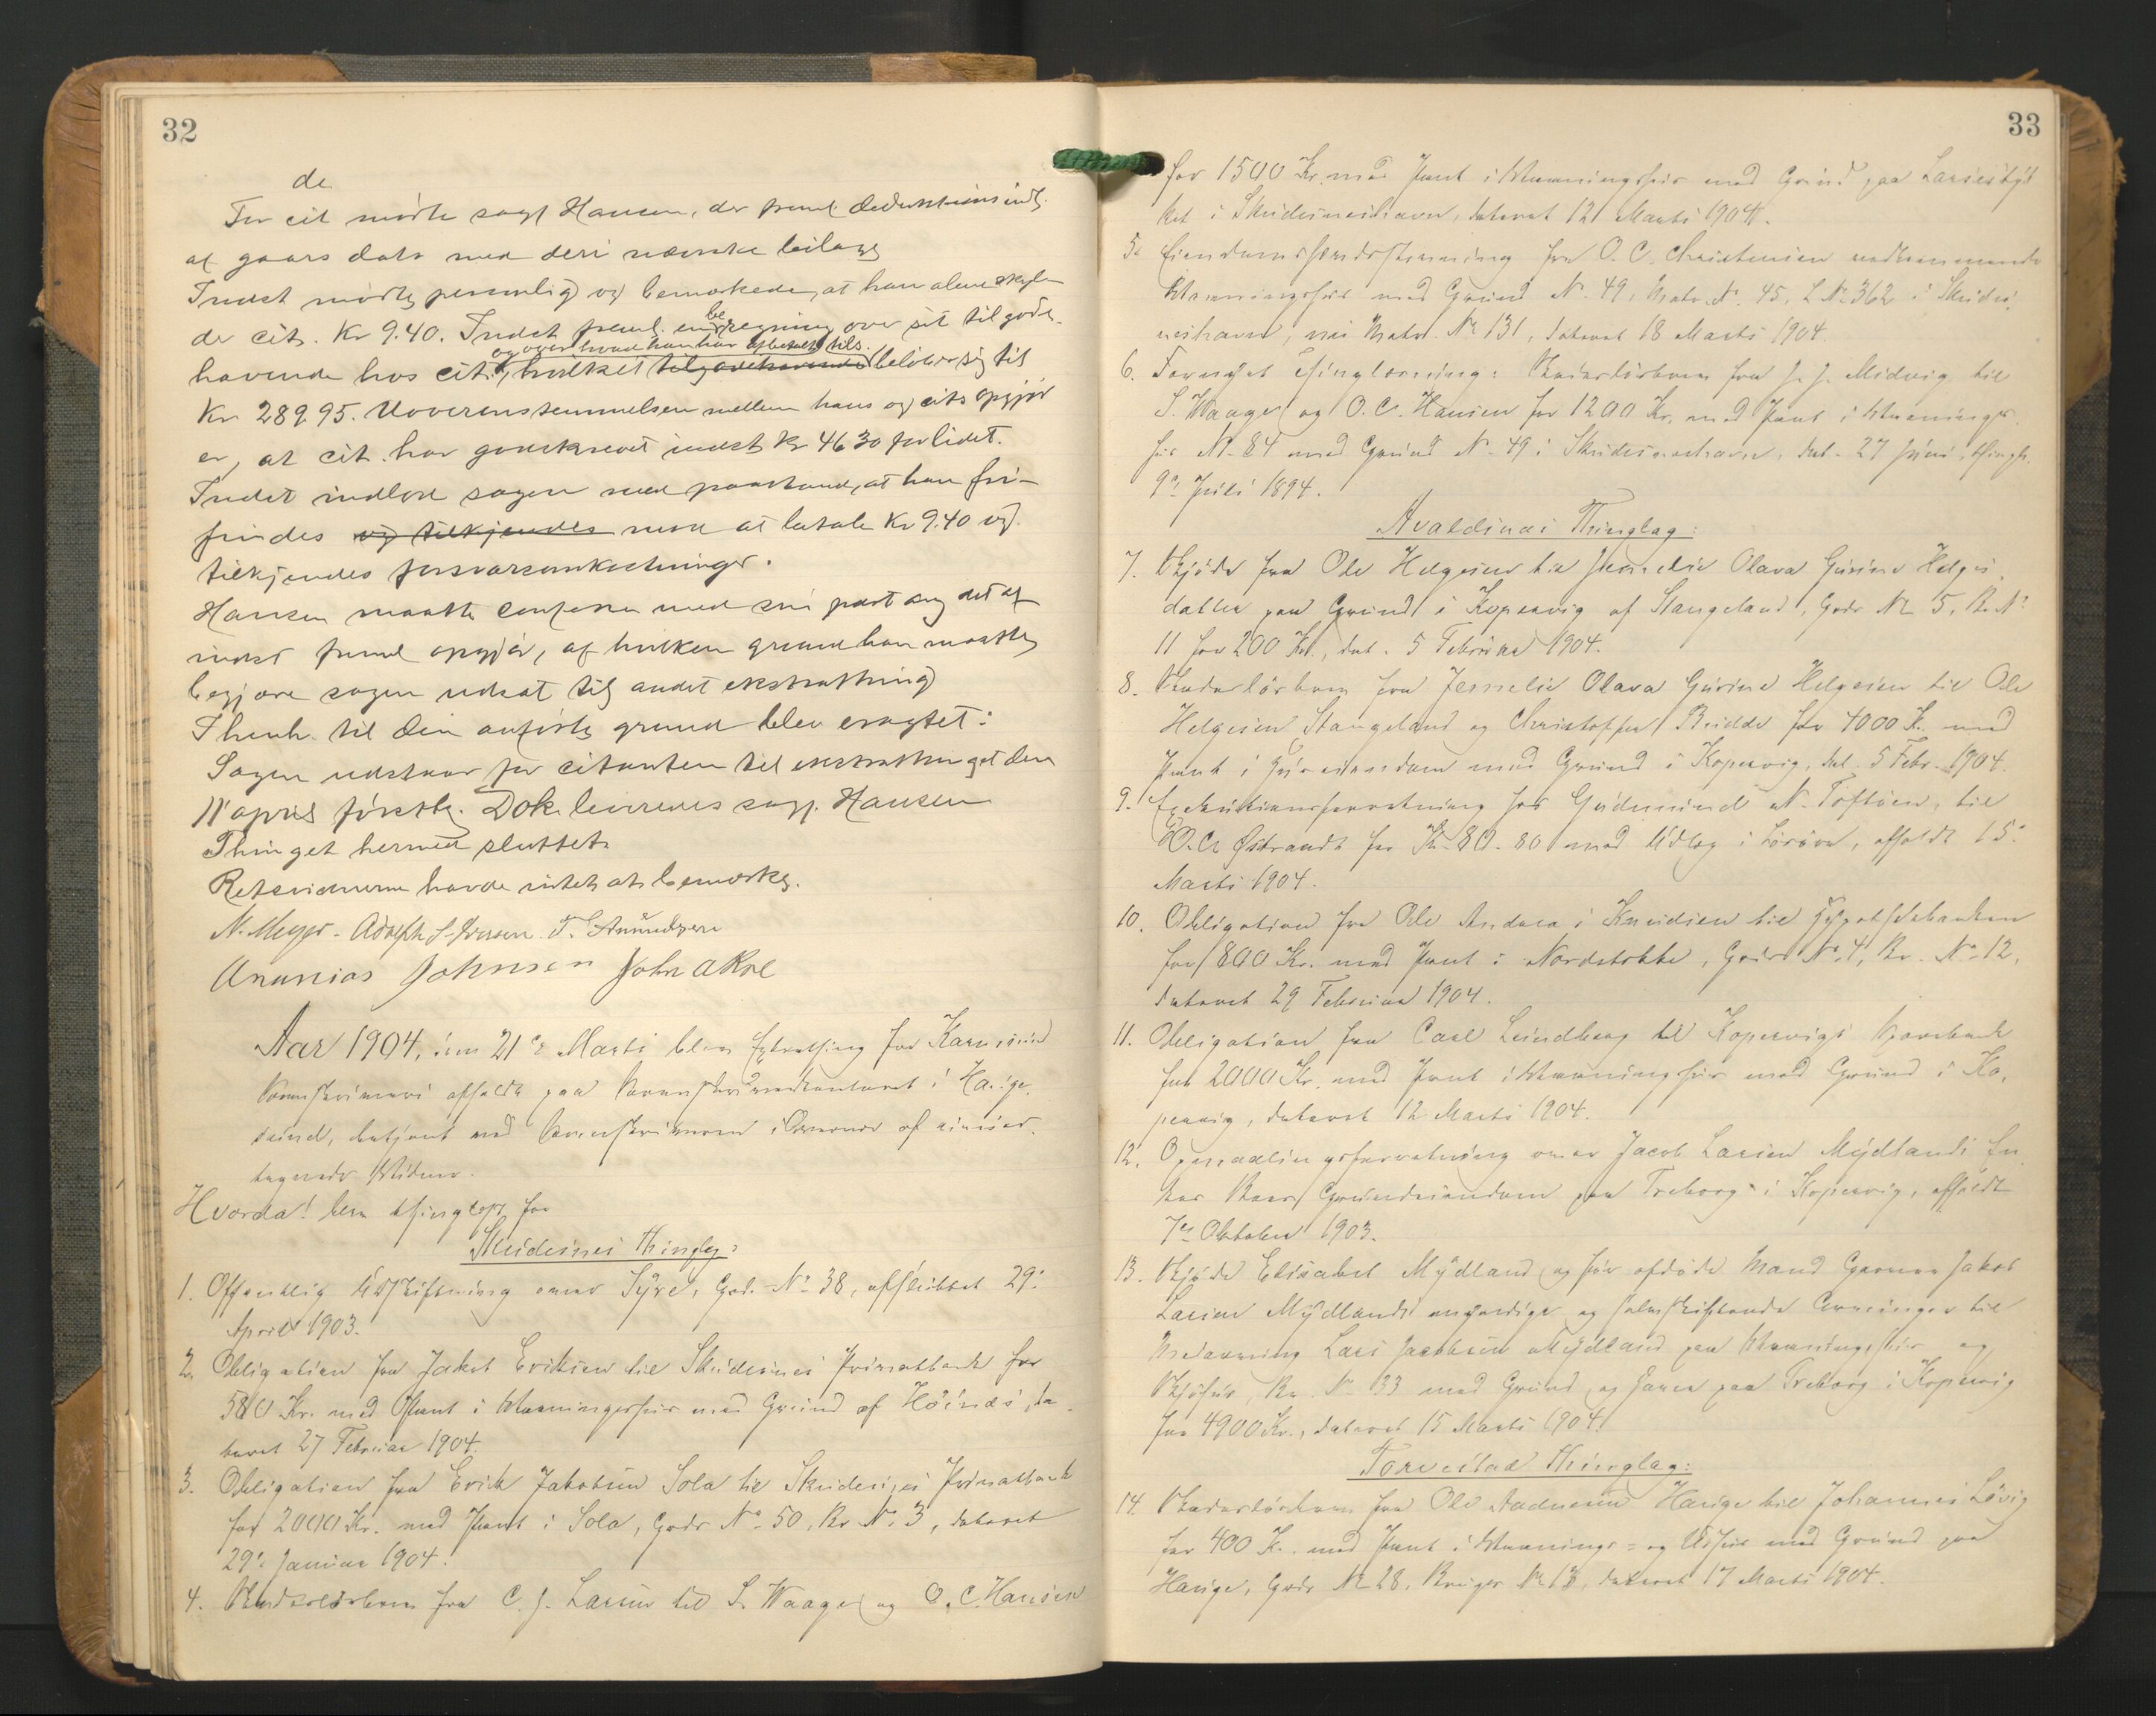 32
de
For cit mødte sagf Hansen, der freml deduktionsindl.
af gaars dato med deri nævnte bilag
Indst mødte personlig og bemærkede, at han alene skyl-
der cit. Kr 9.40. Indst freml. en beregning over sit tilgode-
og over hvad han har afbetalt tils.
havende hos cit., hvilket tilgodehavende beløber sig til
Kr 289.95. Uoverensstemmelsen mellem hans og cits opgjør
er, at cit. har godskrevet indst kr 46.30 for lidet.
Indst indlod sagen med paastand, at han fri-
findes og tilkjendes mod at betale Kr 9.40 og
tilkjendes forsvarsomkostninger.
Hansen maatte conferere med sin part ang det af
indst freml opgjør, af hvilken grund han maatte
begjære sagen udsat til andet ekstrathing
I henh. til den anførte grund blev eragtet:
Sagen udstaar for citanten til ekstrathinget den
11 april førstk. Dok. leveredes sagf. Hansen
Thinget hermed sluttet.
Retsvidnerne havde intet at bemærke.
N. Meyer. Adolph S. Iversen. T. Amundsen
Ananias Johnsen John A Roe
Aar 1904, den 21de Marts blev Extrathing for Karmsund
Sorenskriveri afholdt paa Sorenskriverkontoret i Hauge-
sund, betjent med Sorenskriveren i Overvær af
tagende Vidner.
Hvorda! blev thinglæst for
Skudesnes Thinglag:
1. Offentlig Udskiftning over Syre, Gd. No 38, afsluttet 29.
April 1903.
2. Obligation fra Jakob Eriksen til Skudesnes Privatbank for
580 Kr. med Pant i Vaaningshus med Grund af Høines, da-
teret 27 Februar 1904.
3. Obligation fra Erik Jakobsen Sola til Skudesnes Privatbank
for 2000 Kr. med Pant i Sola, Gads No. 50, Br. No. 3, dateret
29. Januar 1904.
4. Skadesløsbrev fra C. J. Larsen til S. Waage og O. C. Hansen
33
for 1500 Kr. med Pant i Vaaningshus med Grund paa Larsestyk
ket i Skudesneshavn, dateret 12 Marts 1904.
5. fra O. C. Christensen vedkommende
Vaaningshus med Grund No. 49, Matr. No. 45, L. No 362 i Skudes-
neshavn, nu Matr. No 131, dateret 18 Marts 1904.
6. Fornyet Thinglæsning: Skadesløsbrev fra J. J. Midvig til
S. Waage og O. C. Hansen for 1200 Kr. med Pant i Vaanings-
hus No. 84 med Grund No. 49 i Skudesneshavn, dat. 27 Juni, thingl.
9de Juli 1894.
Avaldsnes Thinglag:
7. Skjøde fra Ole Helgesen til Jenselie Olava Gurine Helges-
datter paa Grund i Kopervig af Stangeland, Gads No 5, B. No
11 for 200 Kr., dat. 5 Februar 1904.
8. Skadesløsbrev fra Jenselie Olava Gurine Helgesen til Ole
Helgesen Stangeland og Christoffer Bridde for 4000 K. med
Pant i Huseiendom med Grund i Kopervig, dat. 5 Febr. 1904.
9. Exekutionsforretning hos Gudmund N. Toftøen, til
O. C. Østrandt for Kr. 80.80 med Udlæg i Løsøre, afholdt 15.
Marts 1904.
10. Obligation fra Ole Andreas Knudsen til Hypothekbanken
for 800 Kr. med Pant i Nordstokke, Gads No. 4, Br. No. 12,
dateret 29 Februar 1904.
11. Obligation fra Carl Lundberg til Kopervigs Sparebank
for 2000 Kr. med Pant i Vaaningshus med Grund i Ko-
pervig, dateret 12 Marts 1904.
12. Opmaalingsforretning over Jacob Larsen Mydlands En-
kes Grundeiendom paa Treborg i Kopervig, afholdt
7de Oktober 1903.
13. Skjøde Elisabet Mydland og hendes afdøde Mand Jakob
Larsen Mydlands myndige og selvskiftende Arvinger til
Medarving Lars Jacobsen Mydland paa Vaaningshus og
Sjøhus, Br. No. 33 med Grund og Have paa Treborg i Kopervig
for 4900 Kr., dateret 15 Marts 1904.
Torvestad Thinglag:
14. Skadesløsbrev fra Ole Aadnesen Hauge til Johannes Løvig
for 400 K. med Pant i Vaanings- og Udhus med Grund paa
Hauge, Gads No 28, Bruges No 13, dateret 17 Marts 1904.